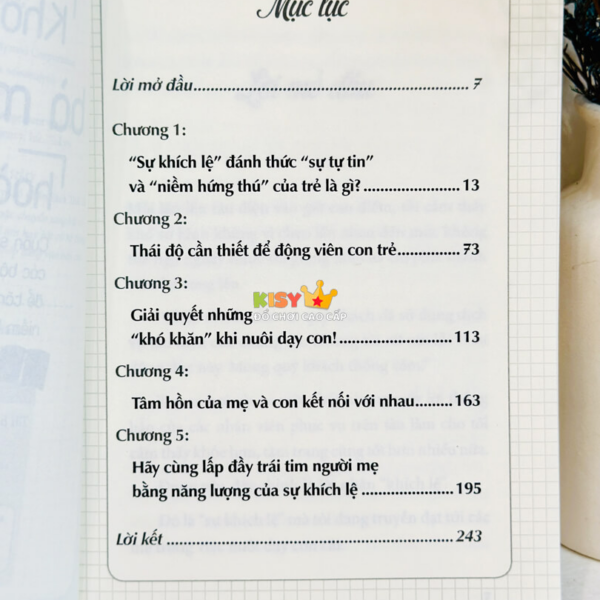 Mục lục
Lời mở đầu.......................................................... 7
Chương 1:
"Sự khích lệ" đánh thức "sự tự tin"
và "niềm hứng thú" của trẻ là gì?..................... 13
Chương 2:
Thái độ cần thiết để động viên con trẻ.............. 73
Chương 3:
Giải quyết những
KISY
ĐỒ CHƠI CAO CẤP
"khó khăn" khi nuôi dạy con!......................... 113
Chương 4:
Tâm hồn của mẹ và con kết nối với nhau........ 163
Chương 5:
Hãy cùng lấp đầy trái tim người mẹ
bằng năng lượng của sự khích lệ .................... 195
Lời kết .............................................................. 243